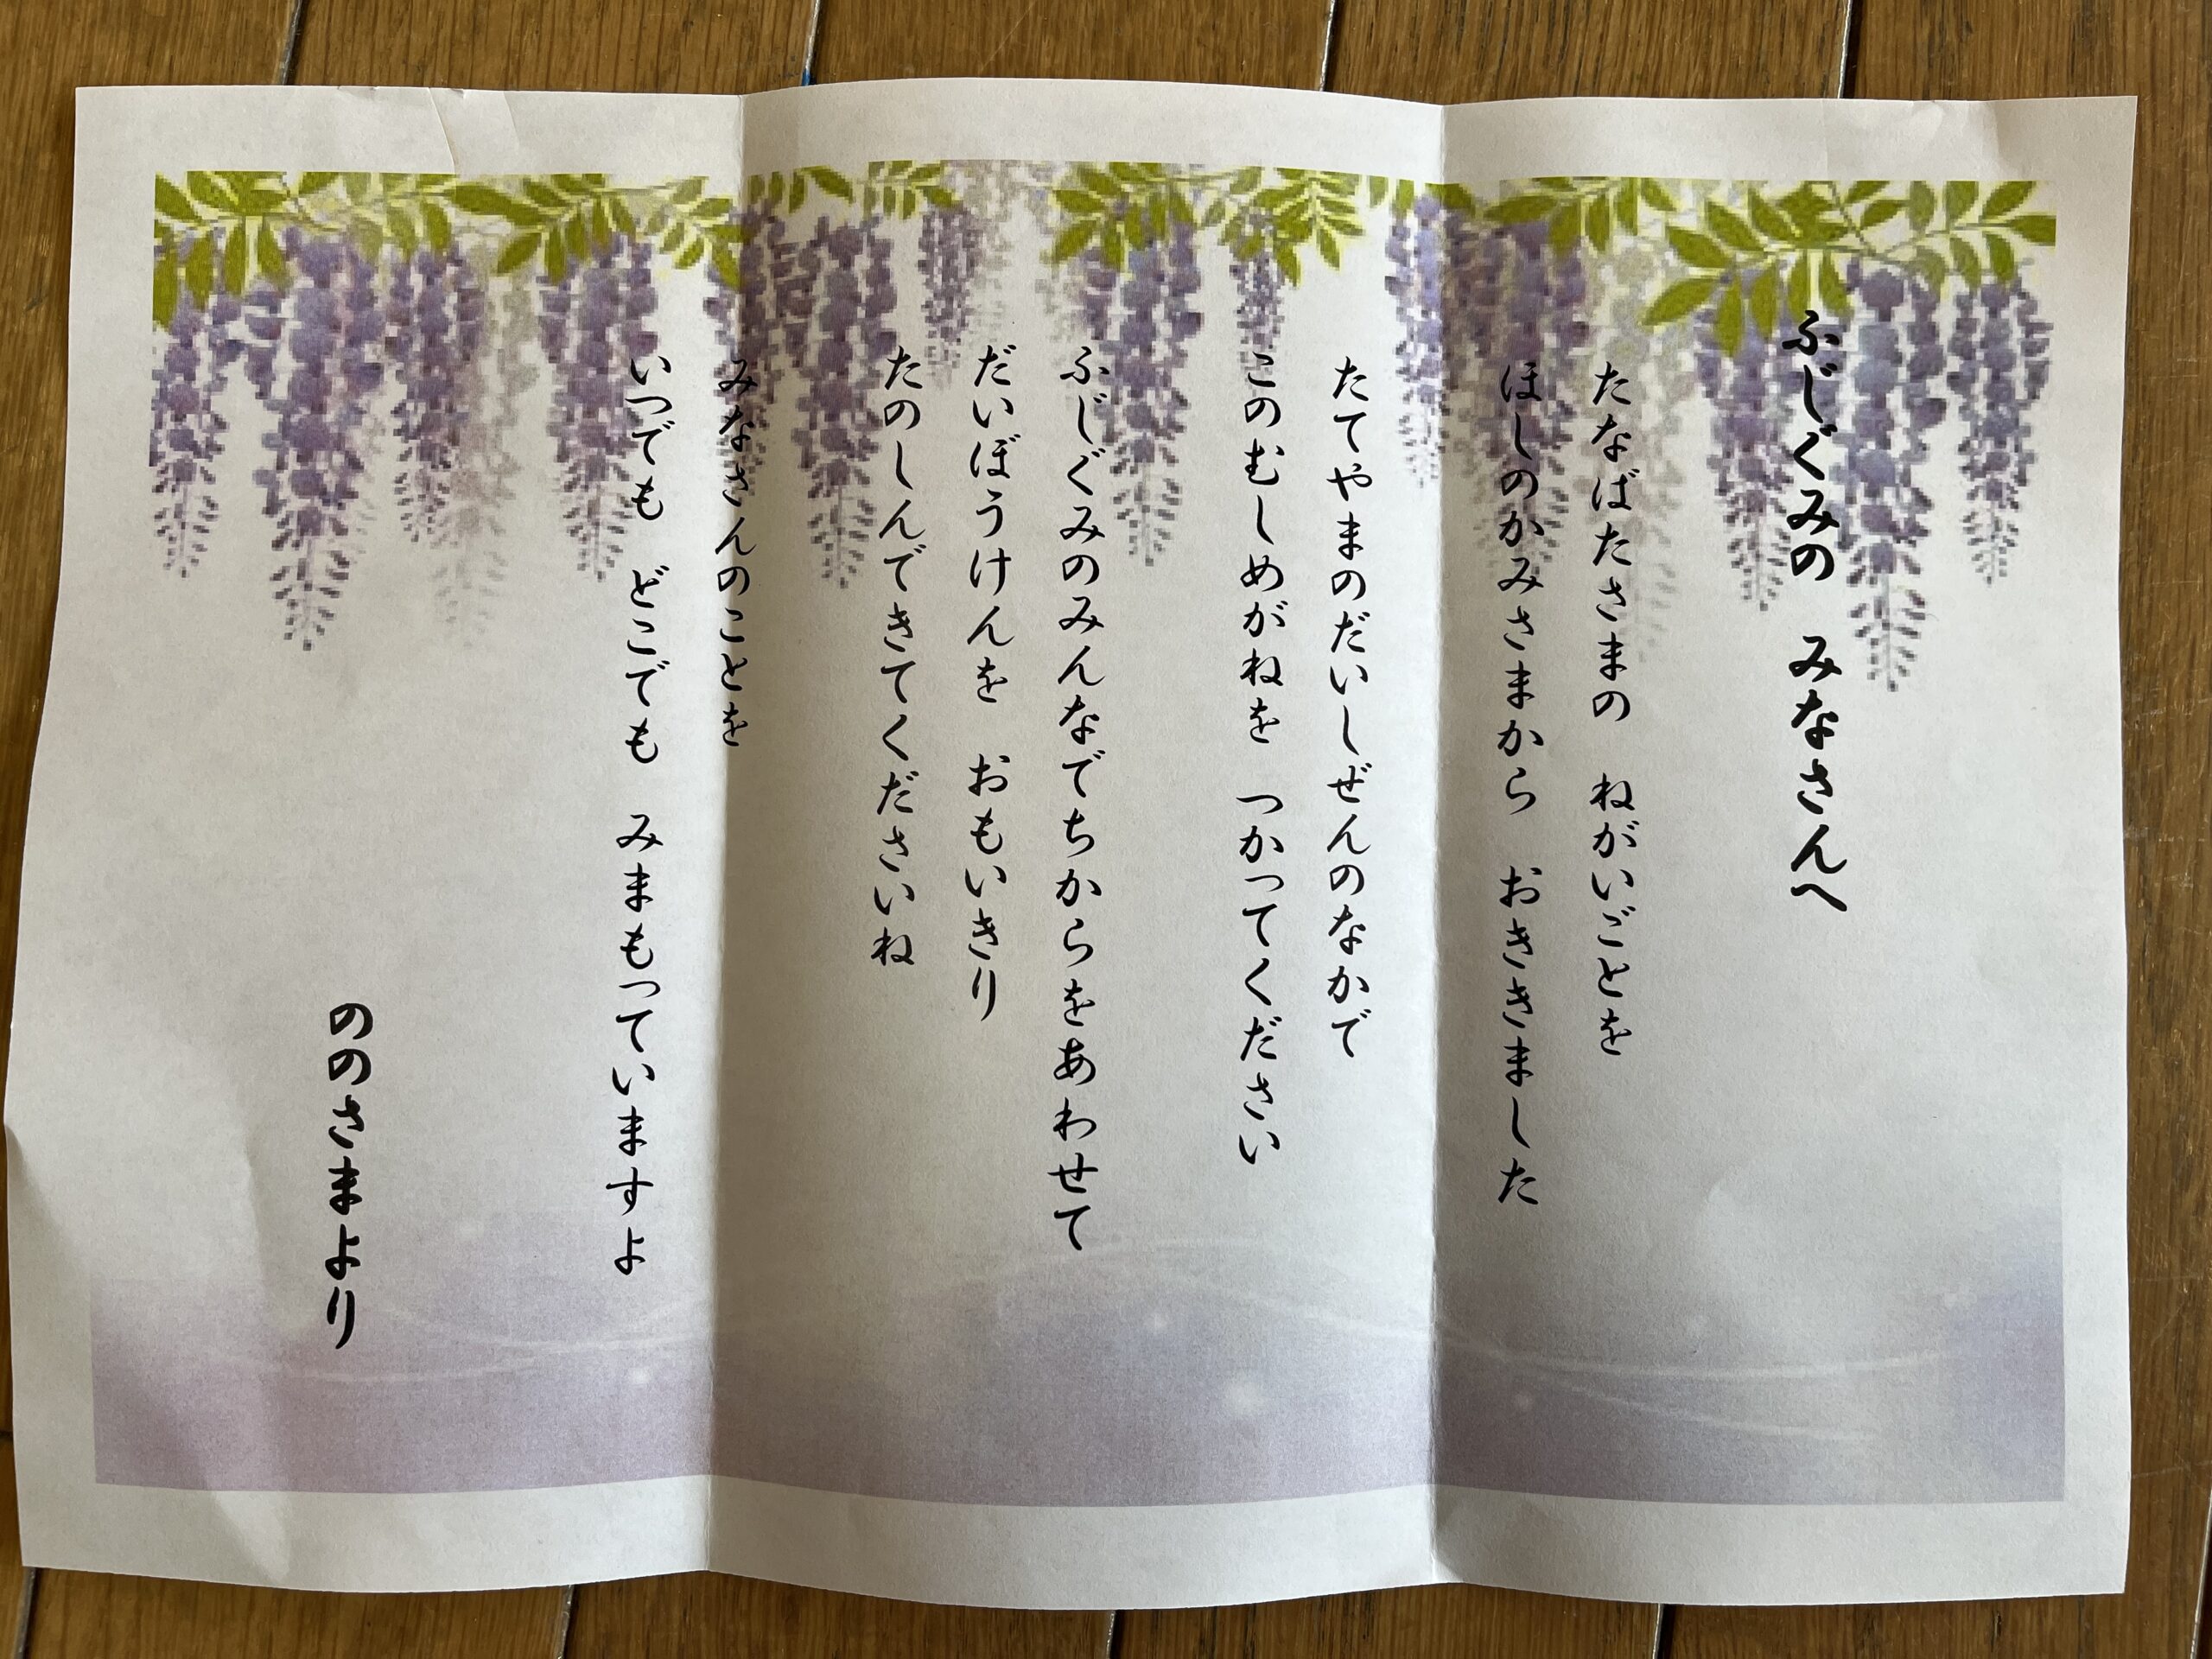 ふじぐみの　みなさんへ
たなばたさまの　ねがいごとを
ほしのかみさまから　おききました
たてやまのだいしぜんのなかで
このむしめがねを　つかってください
ふじぐみのみんなでちからをあわせて
だいぼうけんを　おもいきり
たのしんできてくださいね
みなさんのことを
いつでも　どこでも　みまもっていますよ
ののさまより